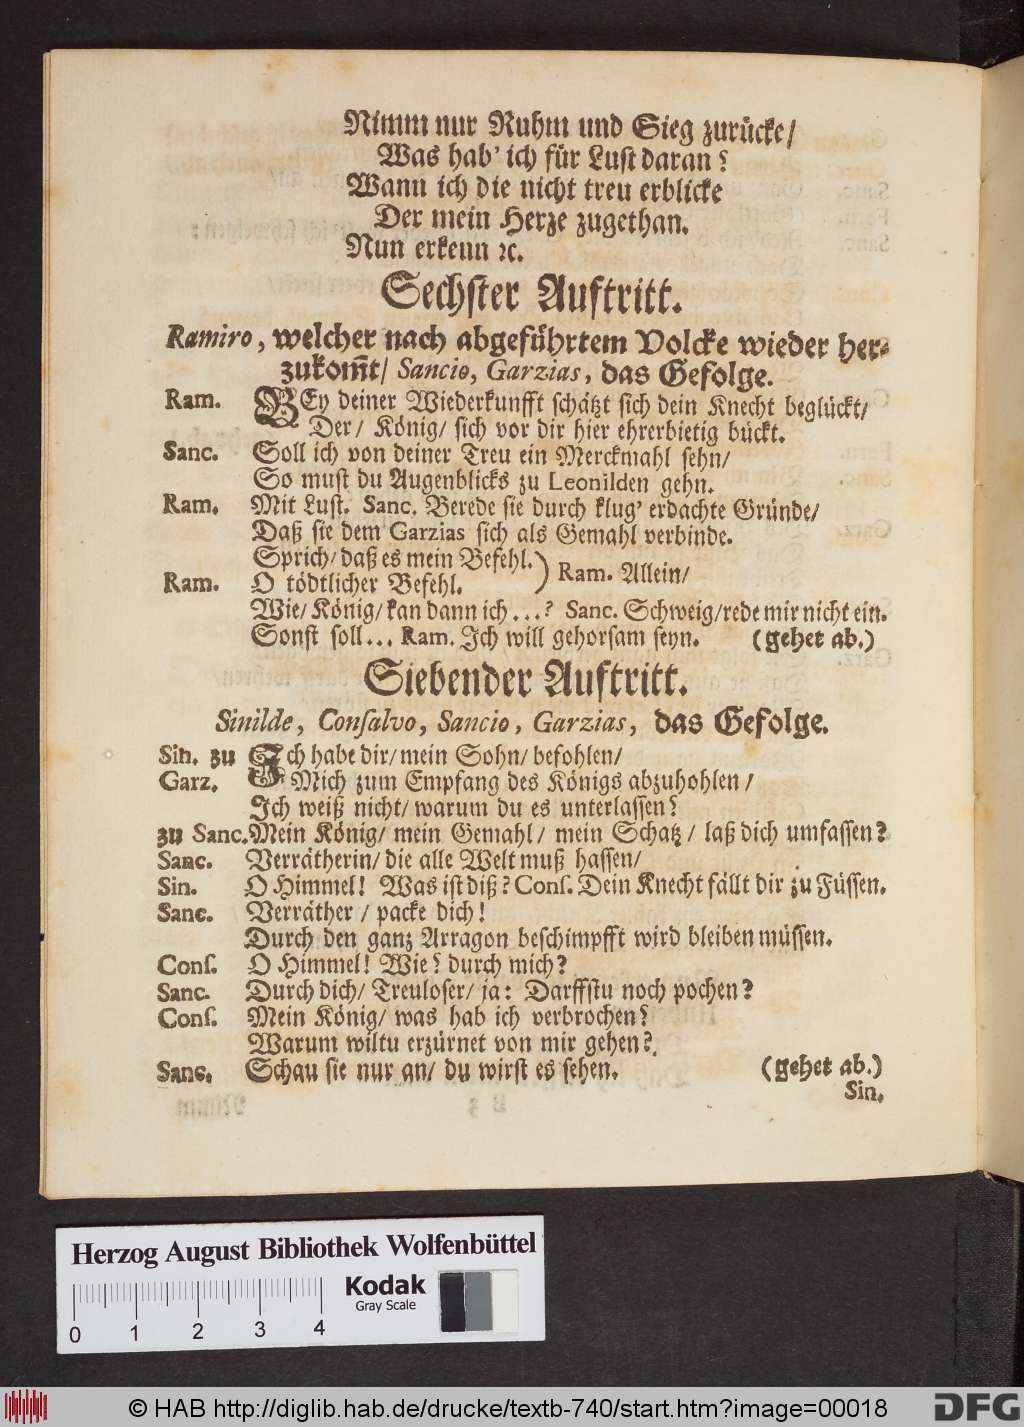 Nimm nur Ruhm und Sieg zurücke/
Was hab' ich für Lust daran?
Wann ich die nicht treu erblicke
Der mein Herze zugethan.
Nun erkenn ꝛc.
Sechster Auftritt.
Ramiro, welcher nach abgeführtem Volcke wieder her-
zukom̃t/ Sancio, Garzias, das Gefolge.
Ram. BEy deiner Wiederkunfft schätzt sich dein Knecht beglückt/
Der/ König/ sich vor dir hier ehrerbietig bückt.
Sanc. Soll ich von deiner Treu ein Merckmahl sehn/
So must du Augenblicks zu Leonilden gehn.
Ram. Mit Lust. Sanc. Berede sie durch klug' erdachte Gründe/
Daß sie dem Garzias sich als Gemahl verbinde.
Sprich/ daß es mein Befehl.) Ram. Allein/
Ram. O tödtlicher Befehl.
Wie/ König/ kan dann ich ...? Sanc. Schweig/ rede mir nicht ein.
Sonst soll... Ram. Ich will gehorsam seyn. (gehet ab.)
Siebender Auftritt.
Sinilde, Consalvo, Sancio, Garzias, das Gefolge.
Sin. zu Ich habe dir/ mein Sohn/ befohlen/
Garz. Mich zum Empfang des Königs abzuhohlen/
Ich weiß nicht/ warum du es unterlassen?
zu Sanc. Mein König/ mein Gemahl/ mein Schatz/ laß dich umfassen?
Sanc. Verrätherin/ die alle Welt muß hassen/
Sin. O Himmel! Was ist diß? Cons. Dein Knecht fällt dir zu Füssen.
Sanc. Verräther/ packe dich!
Durch den ganz Arragon beschimpfft wird bleiben müssen.
Cons. O Himmel! Wie? durch mich?
Sanc. Durch dich/ Treuloser/ ja: Darffstu noch pochen?
Cons. Mein König/ was hab ich verbrochen?
Warum wiltu erzürnet von mir gehen?
Sanc. Schau sie nur an/ du wirst es sehen. (gehet ab.)
Sin.
Herzog August Bibliothek Wolfenbüttel
Kodak
Gray Scale
0 1 2 3 4
© HAB http://diglib.hab.de/drucke/textb-740/start.htm?image=00018
DFG